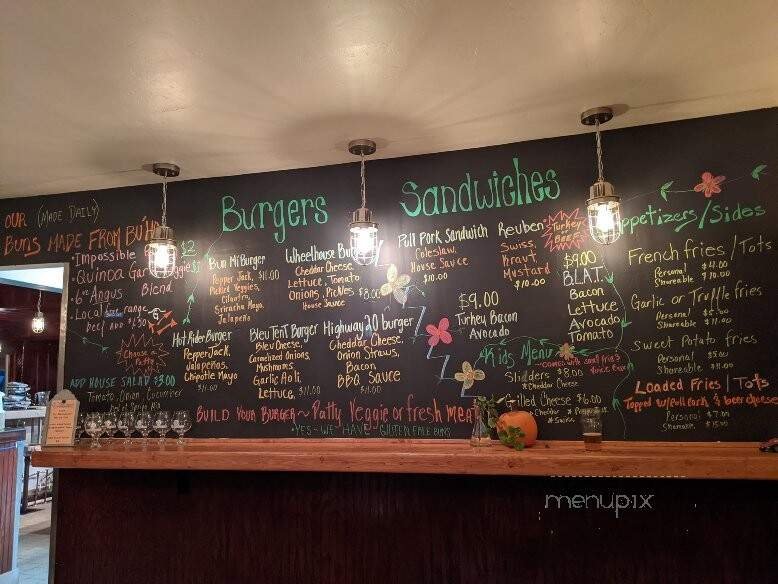 OUR (MADE DAILY)
BUNS MADE FROM
Impossible
Quinoa Garden Veggies
Blend
6oz Angus
Local range
beef ADD $6.50
$2
Choose a Patty
ADD HOUSE SALAD $3.00
Tomato, Onion, Cucumber
Burgers
Bun Mi Burger
Pepper Jack, $11.00
Pickle Veggies,
Cilantro,
Sriracha Mayo,
Jalapeño
Wheelhouse
Cheddar Cheese,
Lettuce, Tomato
Onions, Pickles
House Sauce $8.00
Hot Rider Burger
Pepper Jack,
Jalapeños,
Chipotle Mayo
$11.00
Bleu Tent Burger
Bleu Cheese,
Carmelized Onions,
Mushrooms,
Garlic Aoli,
Lettuce, $11.00
Highway 20 burger
Cheddar Cheese,
Onion Straws,
Bacon
BBQ Sauce
$11.00
BUILD YOUR BURGER ~ Patty Veggie or fresh Meat
YES - WE HAVE GLUTEN FREE BUNS
Sandwiches
Pull Pork Sandwich
Coleslaw,
House Sauce
$10.00
Reuben
Turkey
Beef
Swiss,
Kraut,
Mustard
$10.00
$9.00
Turkey Bacon
Avocado
$9.00
B.L.A.T.
Bacon
Lettuce
Avocado
Tomato
Kids Menu
comes with small fries &
Sliders $8.00
Cheddar Cheese
Grilled Cheese $6.00
Cheddar
Swiss
Appetizers/Sides
French fries / Tots
Personal $4.00
Shareable $10.00
Garlic or Truffle fries
Personal $5.00
Shareable $11.00
Sweet Potato fries
Personal $5.00
Shareable $11.00
Loaded Fries | Tots
Topped w/ Pull Pork & beer cheese
Personal $7.00
Shareable $15.00
menupix